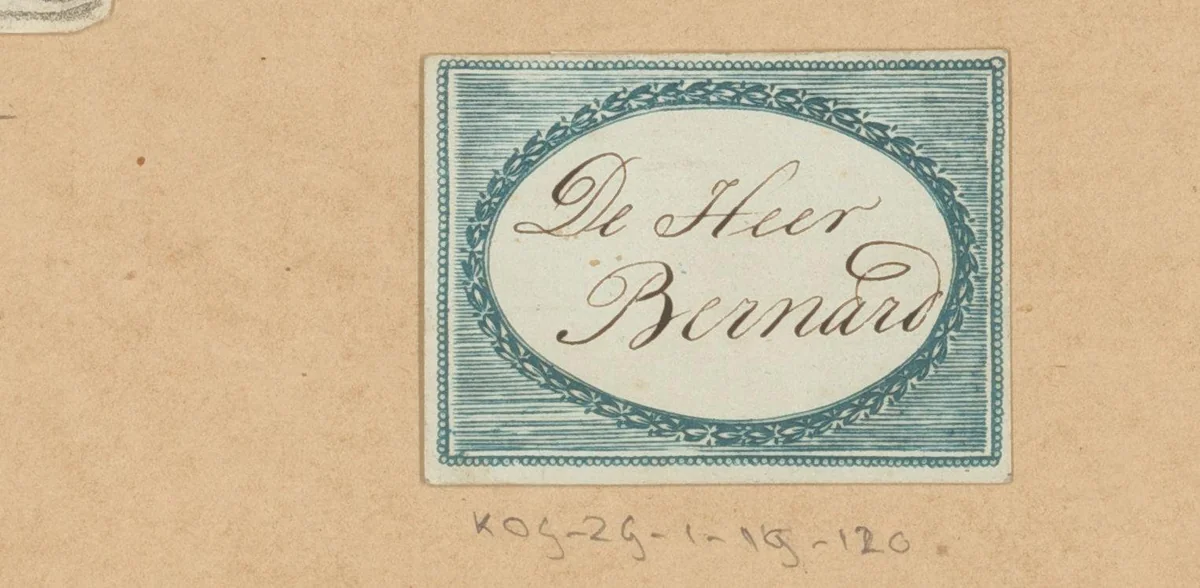 De Heer
Bernard
KOG-ZG-1-18-120